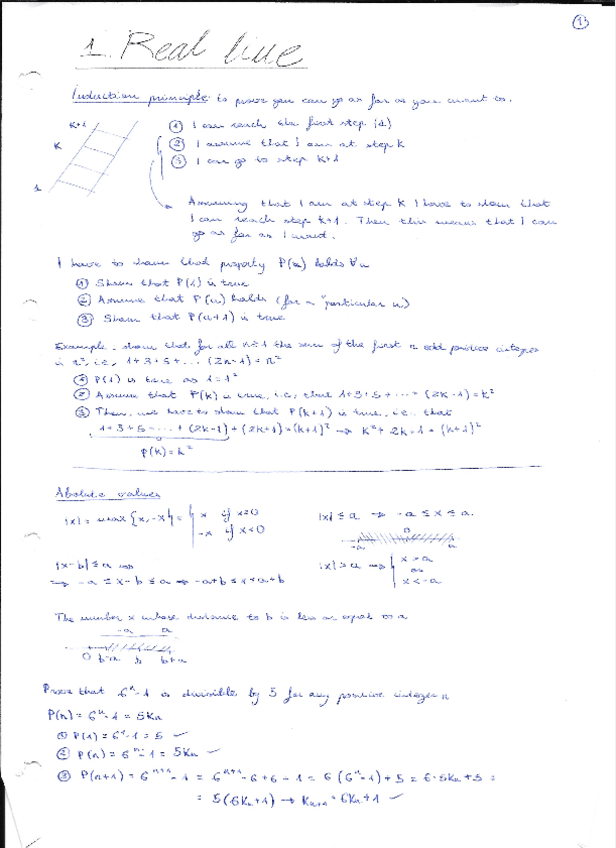 13
1. Real line
Induction principle: to prove you can go as far as you want to.
K+1
K
1
① I can reach the first step (1)
② I assume that I am at step K
③ I can go to step K+1
Assuming that I am at step K I have to show that
I can reach step K+1. Then this means that I can
go as far as I want.
I have to show that property P(n) holds ∀n
① Show that P(1) is true
② Assume that P(n) holds (for a "particular n)
③ Show that P(n+1) is true
Example: show that for all n≥1 the sum of the first n odd positive integers
is n², i.e., 1+3+5+... (2n-1) = n²
① P(1) is true as 1=1²
② Assume that P(K) is true, i.e., that 1+3+5+...+(2K-1)=K²
③ Then, we have to show that P(K+1) is true, i.e. that
1+3+5+...+(2K-1)+(2K+1)=(K+1)² → K²+2K+1=(K+1)²
P(K)=K²
Absolute values
|x| = max {x,-x} = { x if x≥0
-x if x<0
|x| ≤ a → -a ≤ x ≤ a.
-a 0 a
|x-b| ≤ a
→ -a ≤ x-b ≤ a → -a+b ≤ x ≤ a+b
|x| > a → { x > a
or
x < -a
The number x whose distance to b is less or equal to a
-a a
0 b-a b b+a
Prove that 6ⁿ-1 is divisible by 5 for any positive integer n
P(n) = 6ⁿ-1 = 5Kn
① P(1) = 6¹-1 = 5 ✓
② P(n) = 6ⁿ-1 = 5Kn ✓
③ P(n+1) = 6ⁿ⁺¹-1 = 6ⁿ⁺¹-6+6-1 = 6(6ⁿ-1)+5 = 6·5Kn+5 =
= 5(6Kn+1) → Kn+1 = 6Kn+1 ✓